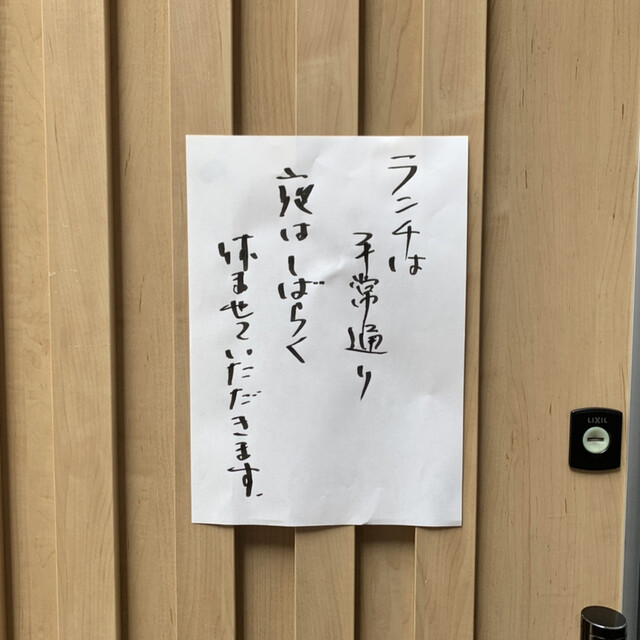 ランチは
平常通り
夜はしばらく
休ませていただきます。
LIXIL